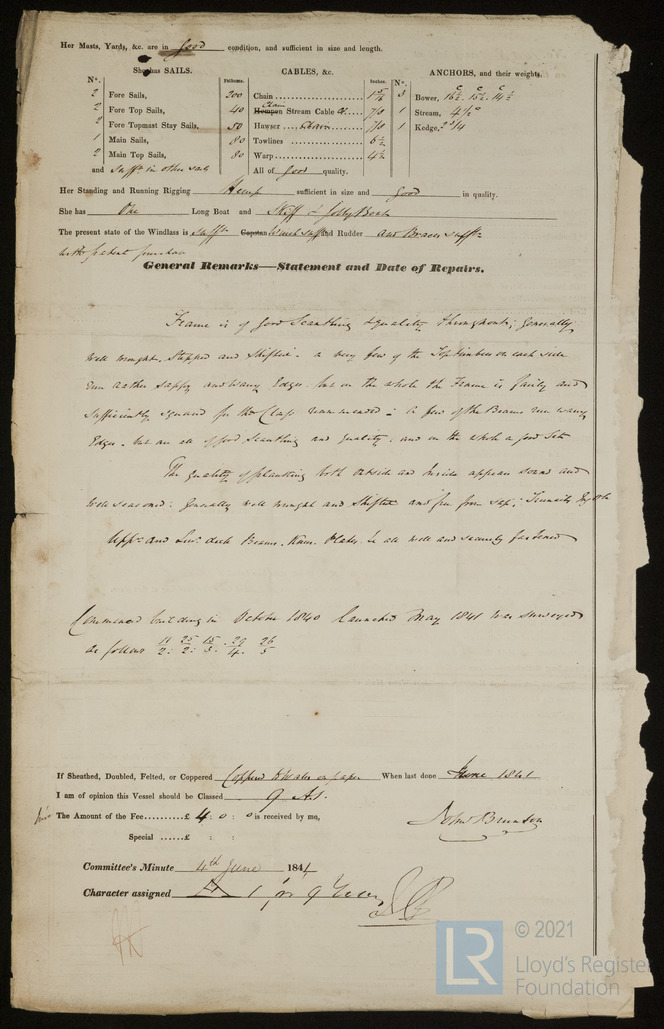 Her Masts, Yards, &c. are in good condition, and sufficient in size and length.
She has SAILS. CABLES, &c. ANCHORS, and their weights.
N°. Fathoms. Inches. N°.
2 Fore Sails, 200 Chain 1 5/16 3 Bower, 16½ . 15½ . 14½
2 Fore Top Sails, 40 Hempen Chain Stream Cable 7/8 1 Stream, 4½
2 Fore Topmast Stay Sails, 80 Hawser Chain 7/8 1 Kedge, 2 3/4
1 Main Sails, 80 Towlines 6½
2 Main Top Sails, 80 Warp 4½
and suffn. in other sails All of good quality.
Her Standing and Running Rigging Hemp sufficient in size and good in quality.
She has One Long Boat and Skiff & Jolly Boat
The present state of the Windlass is suffn. Capstan Winch suffn and Rudder and Braces suffn.
with patent purchase
General Remarks—Statement and Date of Repairs.
Frame is of good Scantling & quality throughout; generally
well wrought, Stopped and Shifted. a very few of the Top timbers on each side
rather sappy and wany Edges. but on the whole the Frame is fairly and
sufficiently squared for the Class recommended – a few of the Beams run wany
Edges. but are all of good Scantling and quality. and on the whole a good Set
The quality of planking both outside and Inside appears sound and
well seasoned: Generally well wrought and Shifted and free from sap; Treenails Engl. Oak
Uppr. and Lowr. deck Beams. Knees. Plates. &c all well and securely fastened
Commenced building in October 1840 launched May 1841 was surveyed
as follows 11/2: 25/2: 15/3: 29/4: 26/5
If Sheathed, Doubled, Felted, or Coppered Coppered to Wales on paper When last done June 1841
I am of opinion this Vessel should be Classed 9 A1.
The Amount of the Fee......£ 4 : 0 : 0 is received by me,
John Brunton
Special ......£ : :
Committee's Minute 4th June 1841
Character assigned A 1 for 9 Years
© 2021
LR Lloyd's Register
Foundation